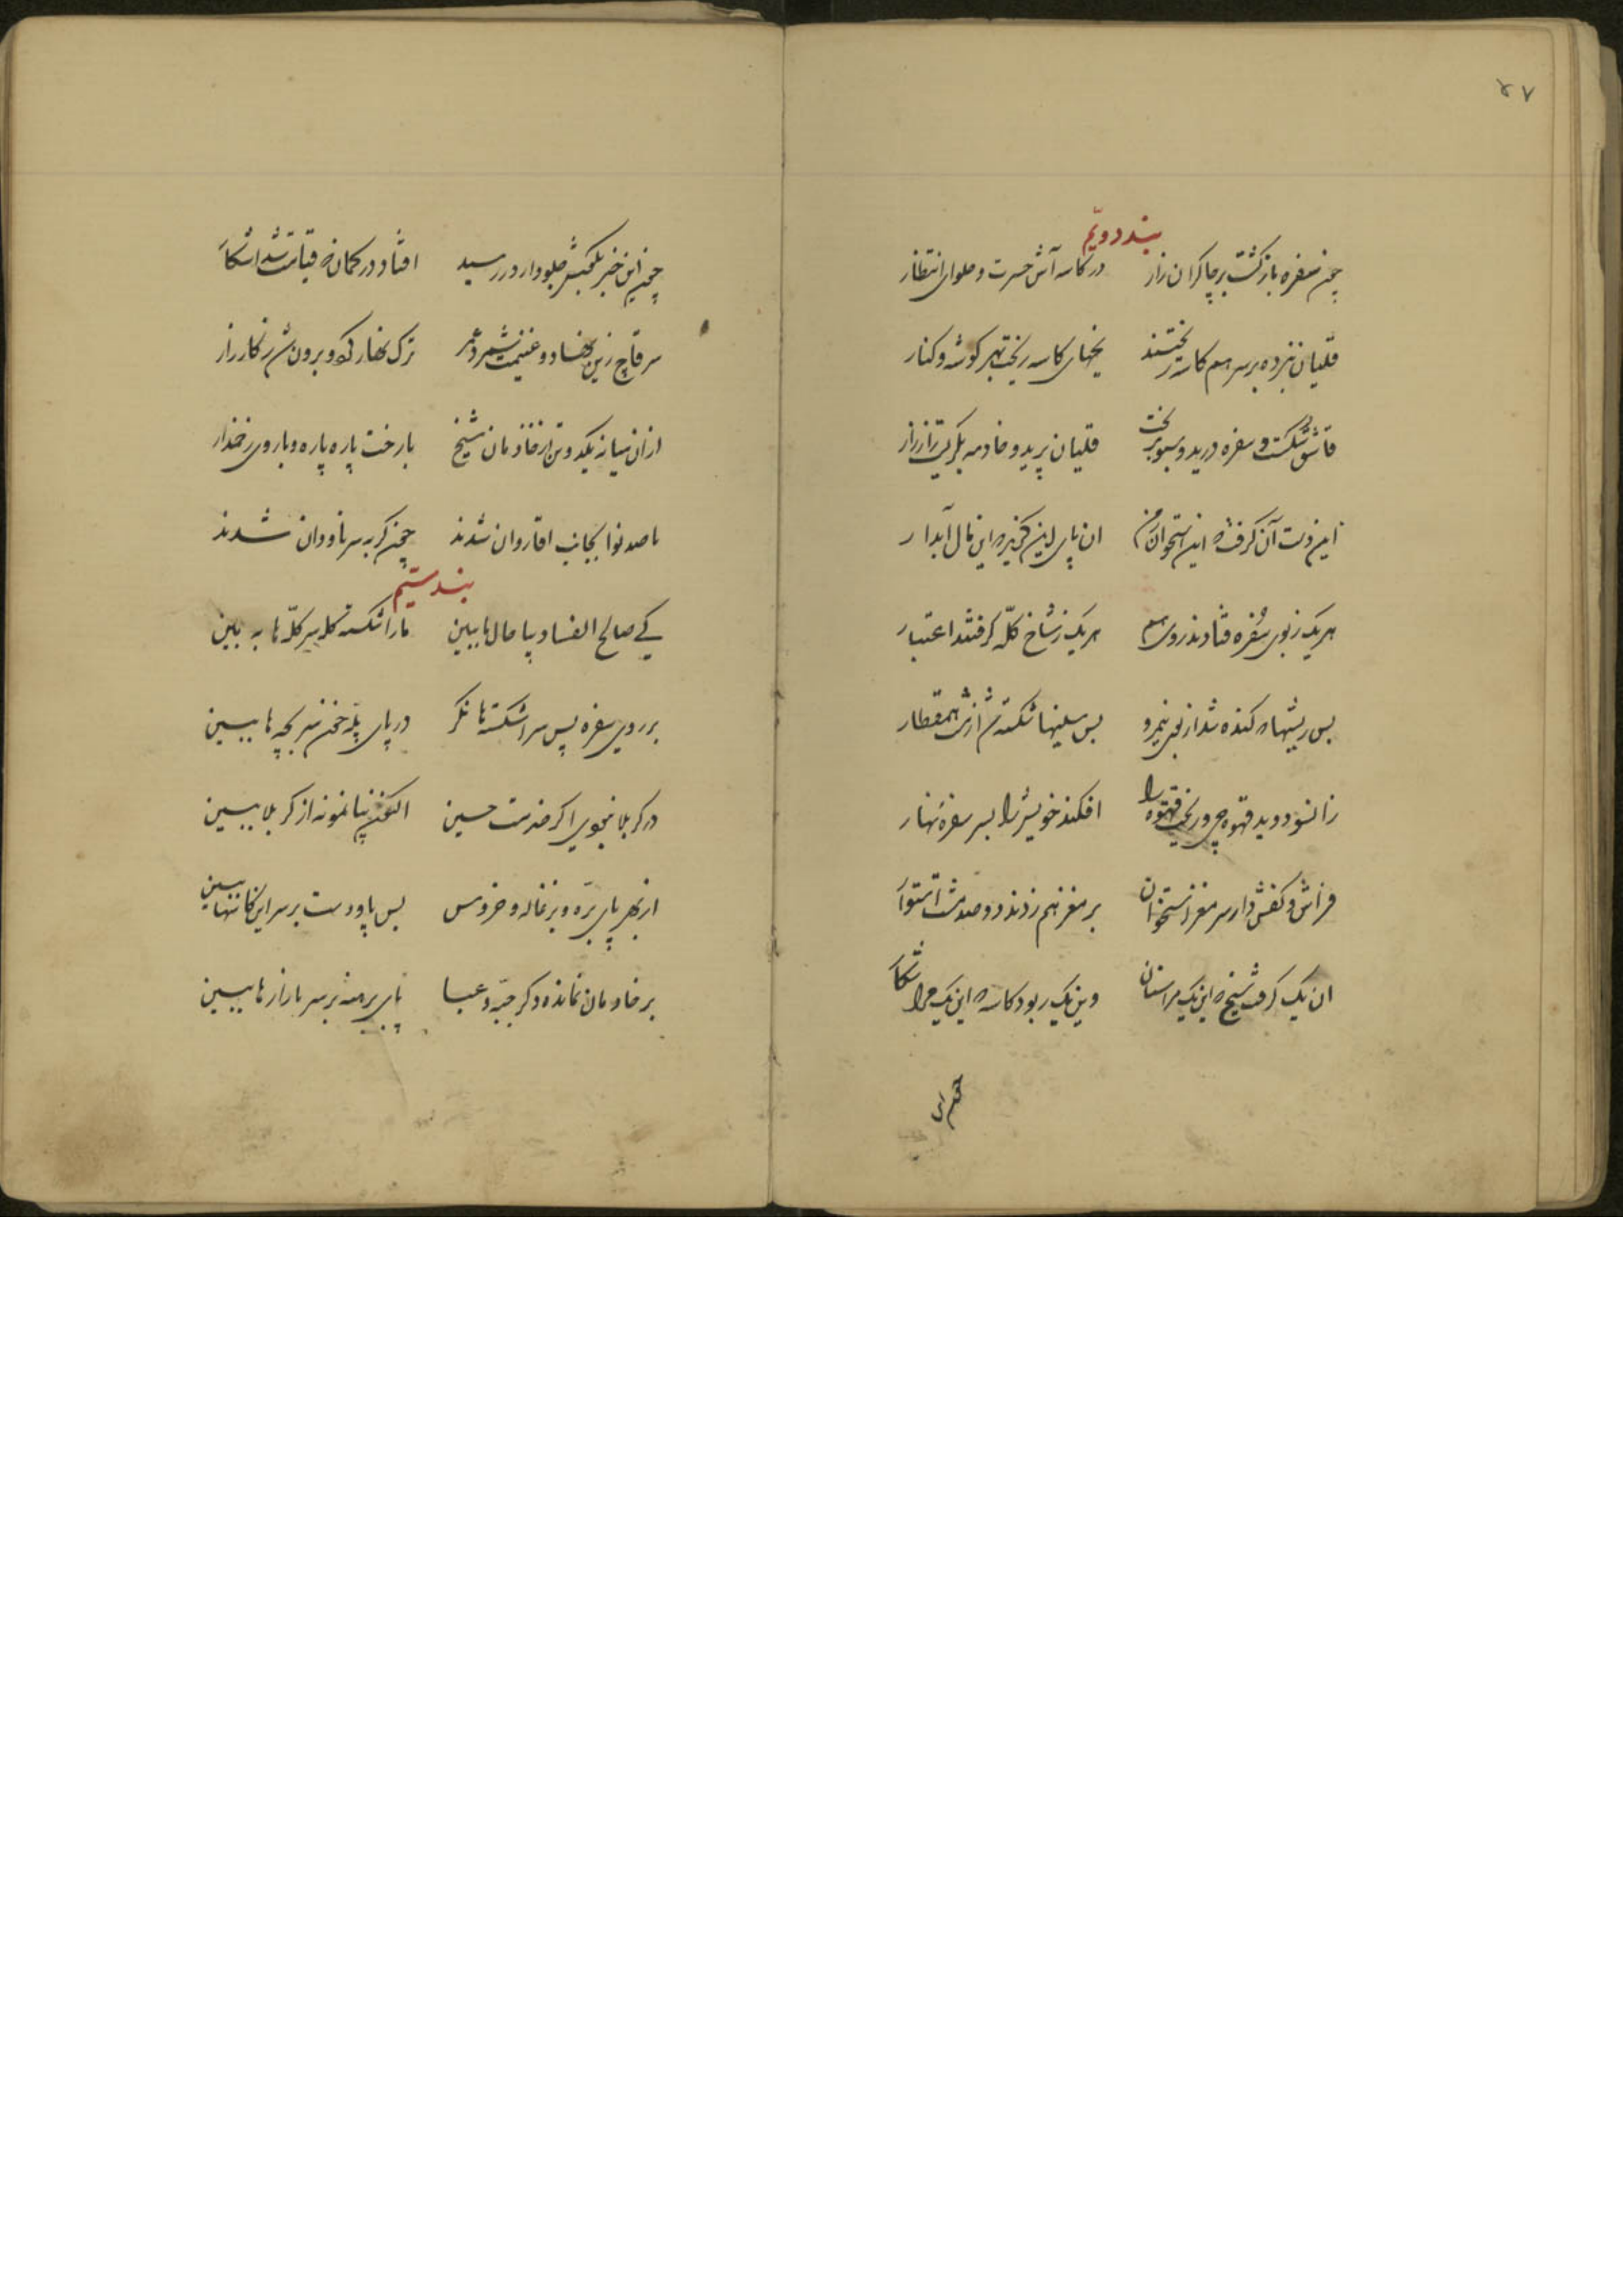 ۴۷
بند دویّم
چون سفره باز گشت بر چاکران زار در کاسه آش حسرت و حلوای انتظار
قلیان نبرده بر سر هم کاسه ریختند یخهای کاسه ریخت بهر گوشه و کنار
قاشق شکست و سفره درید و سبو بریخت قلیان پرید و خادمه بگریست زار زار
این دست آن گرفت که این استخوان من ان پای این که این مال آبدار
هر یک ز بوی سفره فتادند روی هم هر یک ز شاخ کلّه گرفتند اعتبار
بس ریشها که کنده شد از بهر نیمرو بس سینها شکسته شد
زانسو دوید قهوه چی و ریخت قهوه را افکند خویش را بسر سفره نهار
فراش و کفش دار سر مغز استخوان بر مغز هم زدند دو صد مشت استوار
ان یک گرفت شیخ که این یک مراستان وین یک ربود کاسه که این یک مرا شکار
چون این خبر بمجلس جلودار در رسید افتاد در گمان که قیامت شد اشکار
سر قاچ زین نهاد و غنیمت شمرد ترک نهار کرد و برون شد ز کارزار
از ان میانه یکدو تن از خادمان شیخ با رخت پاره پاره و با روی زخمدار
با صد نوا بجانب اقا روان شدند چون گربه سر ناودان شدند
بند سیّم
کی صالح الفساد بیا حال ما ببین ما را شکسته کله سر کلّه ما به بین
بر روی سفره پس سر اشکسته ها نگر در پای پلّه خون سر بچه ها ببین
در کربلا نبودی اگر خدمت حسین اکنون بیا نمونه از کربلا ببین
از بهر پای برّه و بزغاله و خروس بس پا و دست بر سر این کاسها ببین
بر خادمان نمانده دگر جبّه و عبا پای برهنه بر سر بازار ما ببین